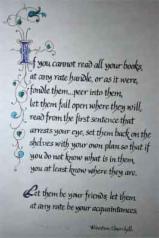 If you cannot read all your books,
at any rate handle, or as it were,
fondle them...peer into them,
let them fall open where they will,
read from the first sentence that
arrests your eye, set them back on the
shelves with your own plan so that if
you do not know what is in them,
you at least know where they are.
Let them be your friends; let them
at any rate be your acquaintances.
Winston Churchill